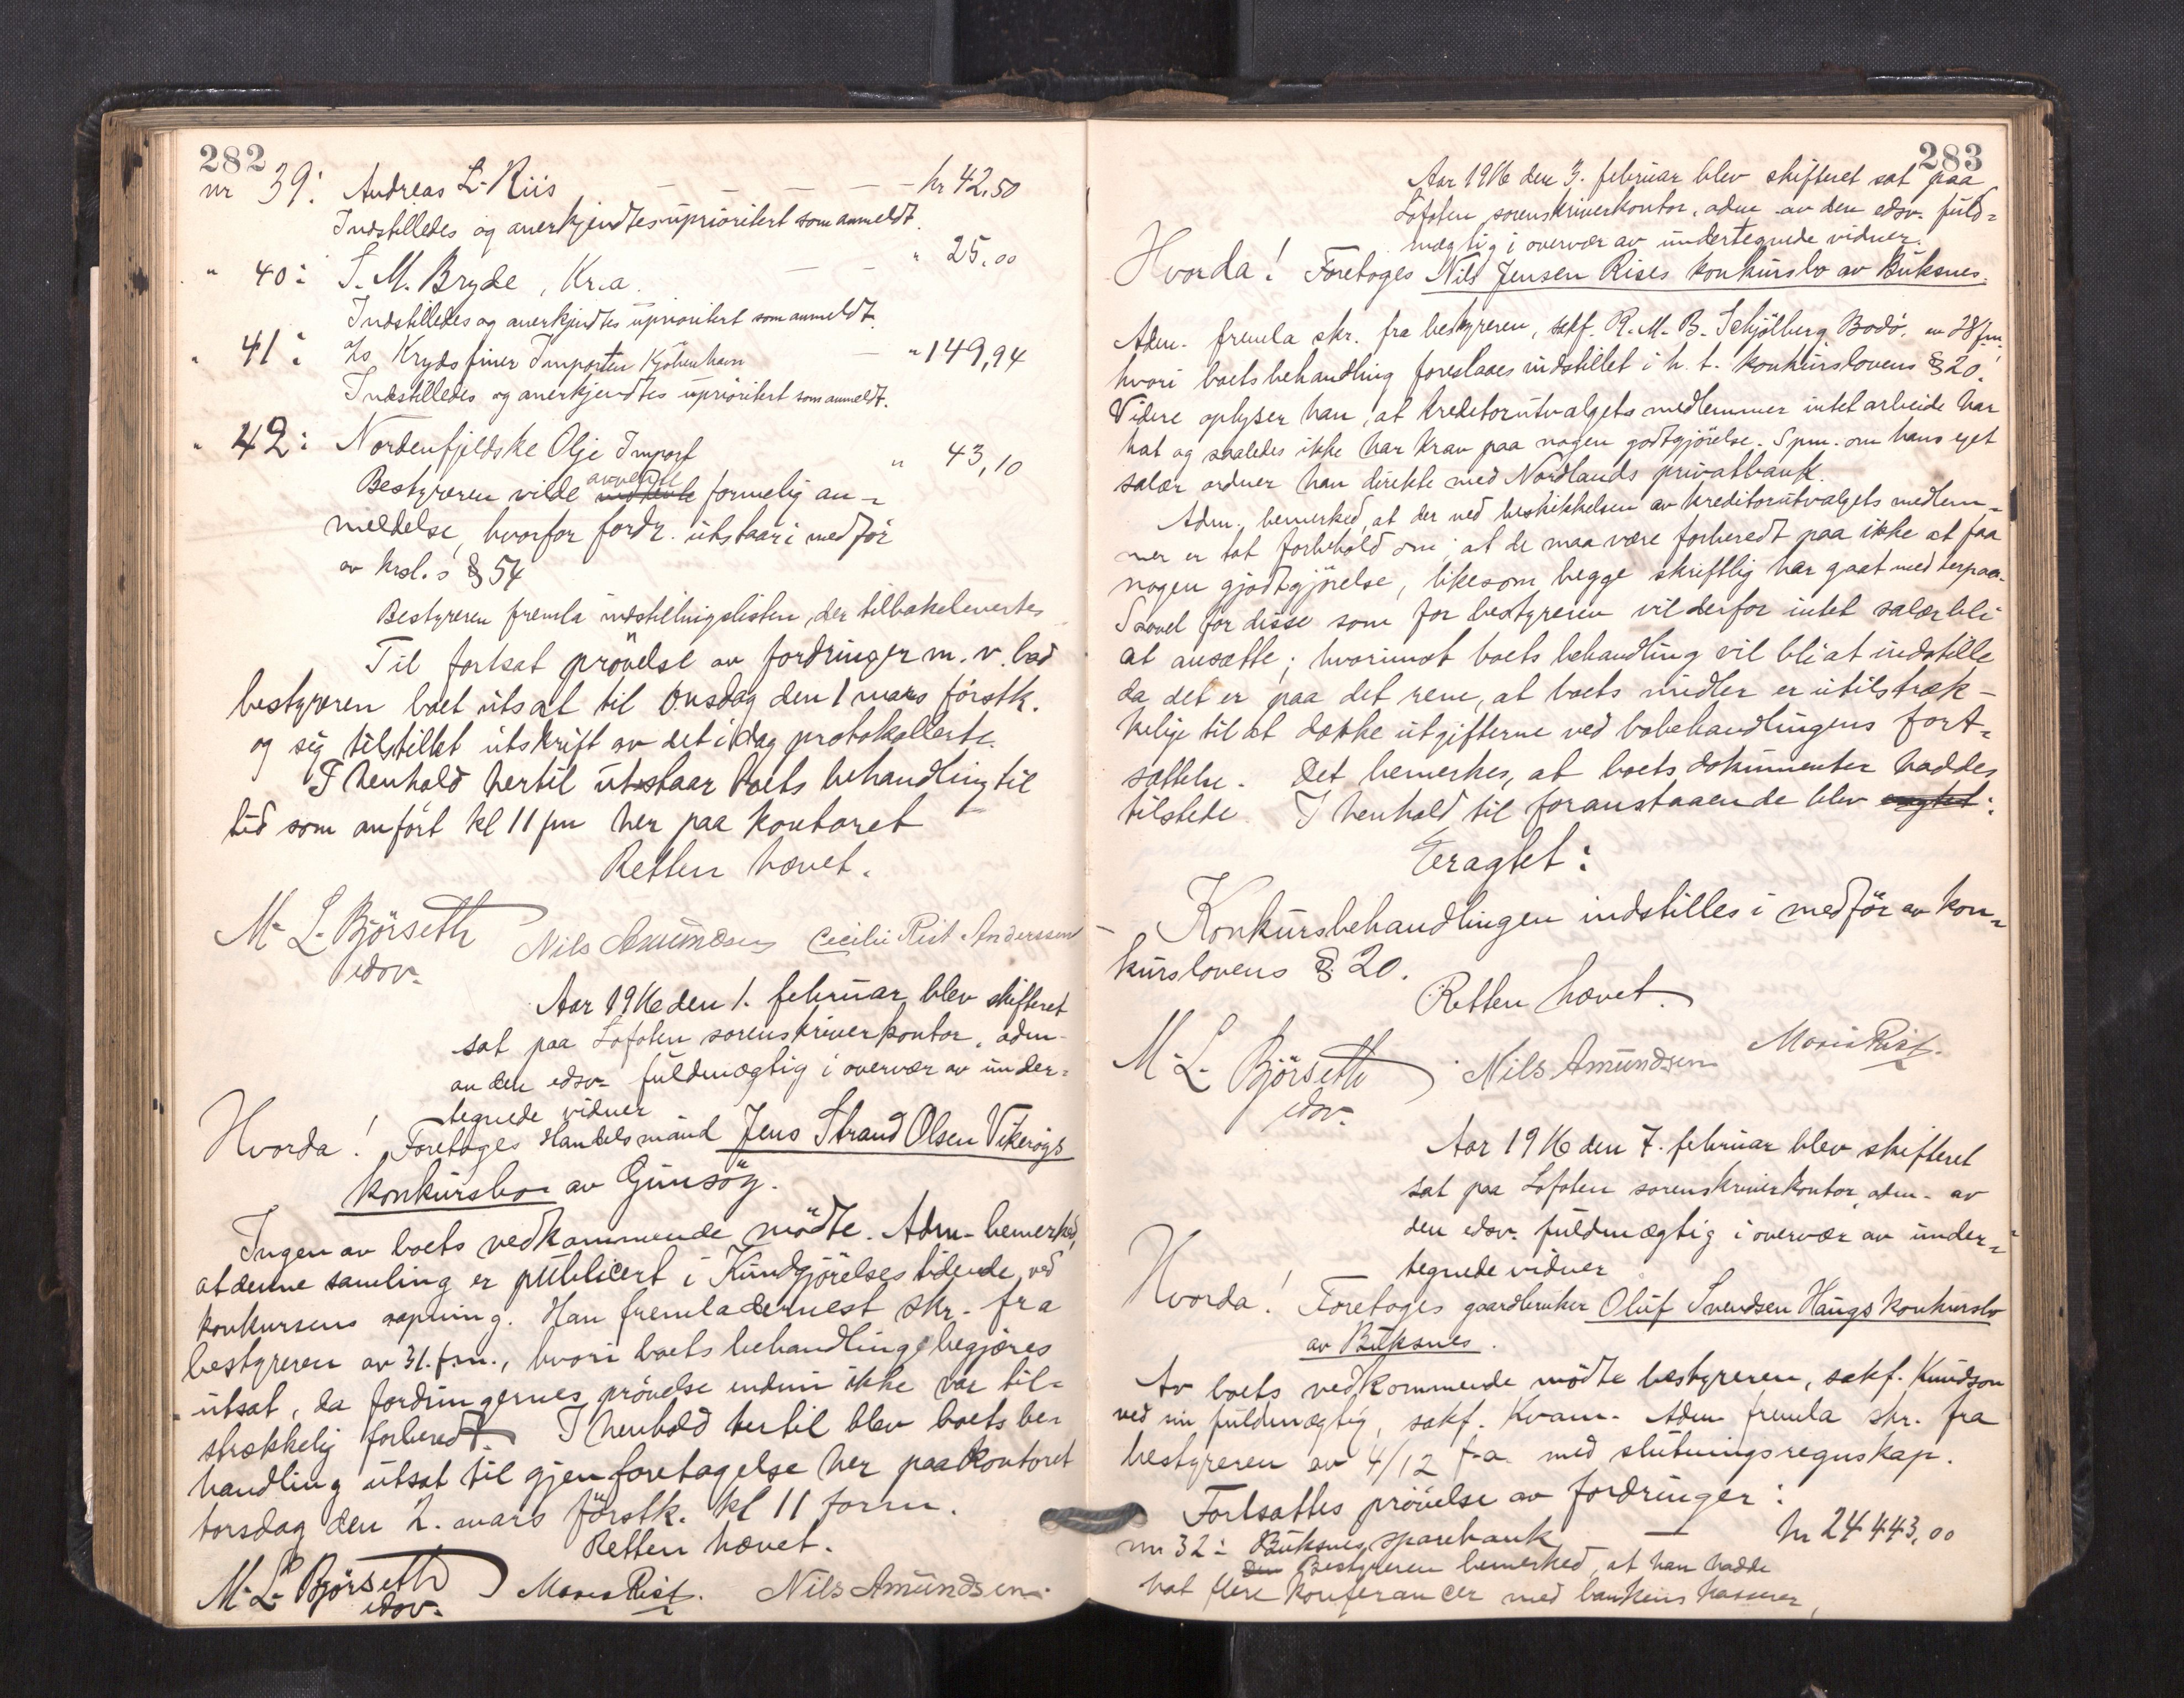 282
nr 39: Andreas L. Riis — — — — kr 42,50
Indstilledes og anerkjendtes uprioritert som anmeldt.
" 40: I. M. Bryde, Kr.a. — — " 25,00
Indstilledes og anerkjendtes uprioritert som anmeldt.
" 41: Krydsfiner Importen Kjöbenhavn — " 149,94
Indstilledes og anerkjendtes uprioritert som anmeldt.
" 42: Nordenfjeldske Olje Import " 43,10
Bestyreren vilde avvente formelig an-
meldelse, hvorfor fordr. utstaar i medför
av krsl.s § 54
Bestyreren fremla indstillingslisten, der tilbakelevertes
Til fortsat prövelse av fordringer m. v. bad
bestyreren boet utsat til Onsdag den 1 mars förstk.
og sig tilstillet utskrift av det idag protokollerte.
I henhold hertil utstaar boets behandling til
tid som anfört kl 11 fm her paa kontoret
Retten hævet.
M. L. Björseth Nils Amundsen Cecilie Rist Anderssen
edsv.
Aar 1916 den 1. februar blev skifteret
sat paa Lofoten sorenskriverkontor, adm.
av den edsv. fuldmægtig i overvær av under-
tegnede vidner
Hvorda! Foretoges Handelsmand Jens Strand Olsen Vikerögs
konkursbo av Gimsöy.
Ingen av boets vedkommende mödte. Adm. bemerked,
at denne samling er publicert i Kundgjörelsestidende ved
konkursens aapning. Han fremla dernest skr. fra
bestyreren av 31. f.m., hvori boets behandling begjæres
utsat, da fordringernes prövelse endnu ikke var til-
strækkelig forberedt. I henhold hertil blev boets be-
handling utsat til gjenforetagelse her paa kontoret
torsdag den 2. mars förstk. kl 11 form.
Retten hævet.
M. L. Björseth Maris Rist. Nils Amundsen.
edsv.
283
Aar 1916 den 3. februar blev skifteret sat paa
Lofoten sorenskriverkontor, adm. av den edsv. fuld-
mægtig i overvær av undertegnede vidner.
Hvorda! Foretoges Nils Jensen Rises konkursbo av Buksnes.
Adm. fremla skr. fra bestyreren, sakf. R. M. B. Schjölberg, Bodö, av 28 f.m.
hvori boets behandling foreslaaes indstillet i h. t. konkurslovens § 20.
Videre oplyser han, at kreditorutvalgets medlemmer intet arbeide har
hat og saaledes ikke har krav paa nogen godtgjörelse. Spm. om hans eget
salær ordner han direkte med Nordlands privatbank.
Adm. bemerked, at der ved beskikkelsen av kreditorutvalgets medlem-
mer er tat forbehold om, at de maa være forberedt paa ikke at faa
nogen gjodtgjörelse, likesom begge skriftlig har gaat med herpaa.
Saavel for disse som for bestyreren vil derfor intet salær bli
at ansætte; hvorimot boets behandling vil bli at indstille
da det er paa det rene, at boets midler er utilstræk-
kelige til at dække utgifterne ved bobehandlingens fort-
sættelse. Det bemerkes, at boets dokumenter haddes
tilstede. I henhold til foranstaaende blev eragtet:
Eragtet:
Konkursbehandlingen indstilles i medför av kon-
kurslovens § 20.
Retten hævet.
M. L. Björseth Nils Amundsen Maris Rist.
edsv.
Aar 1916 den 7. februar blev skifteret
sat paa Lofoten sorenskriverkontor, adm. av
den edsv. fuldmægtig i overvær av under-
tegnede vidner
Hvorda! Foretoges gaardbruker Oluf Svendsen Haugs konkursbo
av Buksnes.
Av boets vedkommende mödte bestyreren, sakf. Knudson
ved sin fuldmægtig, sakf. Kvam. Adm. fremla skr. fra
bestyreren av 4/12 f.a. med slutningsregnskap.
Fortsattes prövelse av fordringer:
nr 32: Buksnes sparebank — kr 24443,00
Den Bestyreren bemerked, at han hadde
hat flere konferancer med bankens kasserer,